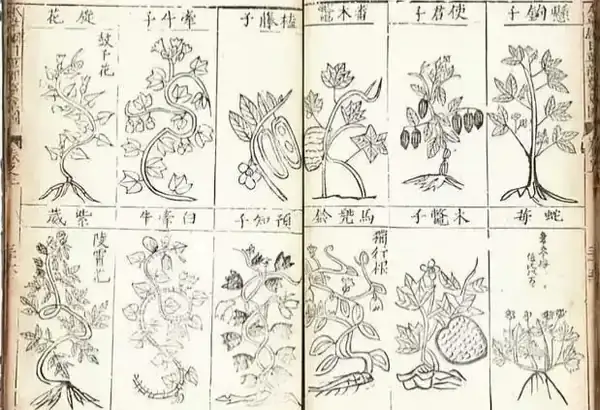 懸鉤子
使君子
番木鼈
榼藤子
牽牛子
旋花
鼓子花
蛇苺
木鼈子
馬兜鈴
獨行根
預知子
白牽牛
紫葳
陵霄花